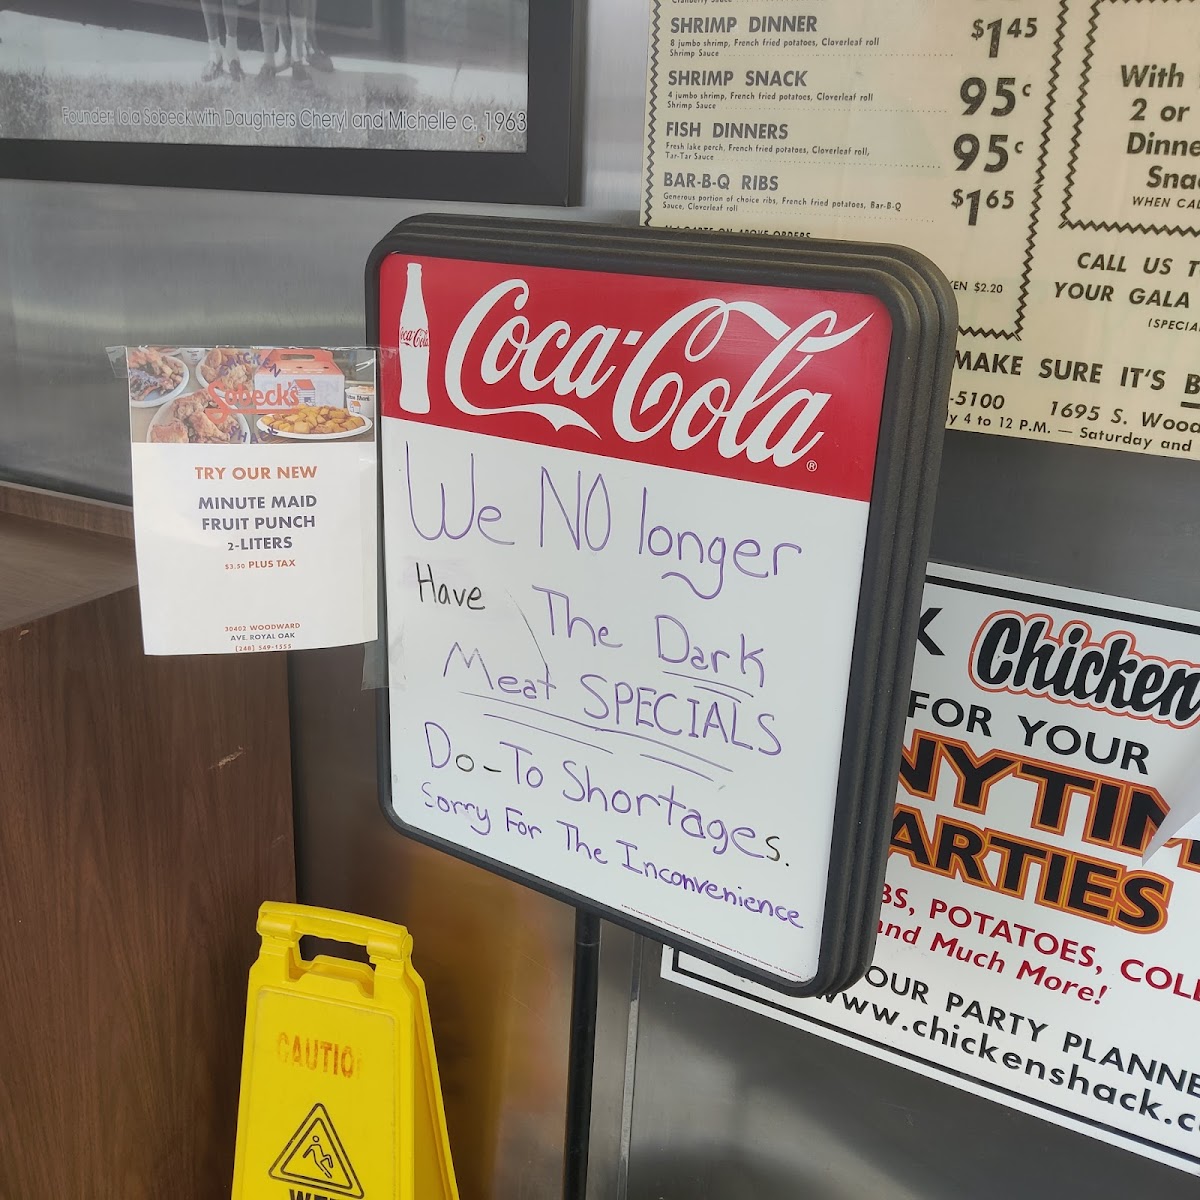 Founder: Iola Sobeck with Daughters Cheryl and Michelle c. 1963
Cranberry Sauce
SHRIMP DINNER $1 45
8 jumbo shrimp, French fried potatoes, Cloverleaf roll
Shrimp Sauce
SHRIMP SNACK 95 c
4 jumbo shrimp, French fried potatoes, Cloverleaf roll
Shrimp Sauce
FISH DINNERS 95 c
Fresh lake perch, French fried potatoes, Cloverleaf roll,
Tar-Tar Sauce
BAR-B-Q RIBS $1 65
Generous portion of choice ribs, French fried potatoes, Bar-B-Q
Sauce, Cloverleaf roll
$2.20
With
2 or
Dinne
Snac
WHEN CAL
CALL US T
YOUR GALA
(SPECIA
MAKE SURE IT'S B
-5100 1695 S. Wood
y 4 to 12 P.M. — Saturday and
Coca-Cola
Coca-Cola ®
We NO longer
Have The Dark
Meat SPECIALS
Do-To Shortages.
Sorry For The Inconvenience
CHICKEN
Sobeck's
SHACK
TRY OUR NEW
MINUTE MAID
FRUIT PUNCH
2-LITERS
$3.50 PLUS TAX
30403 WOODWARD
AVE. ROYAL OAK
(248) 549-1555
K Chicken
FOR YOUR
NYTIM
ARTIES
BS, POTATOES, COLE
and Much More!
OUR PARTY PLANNE
www.chickenshack.c
CAUTIO
WET